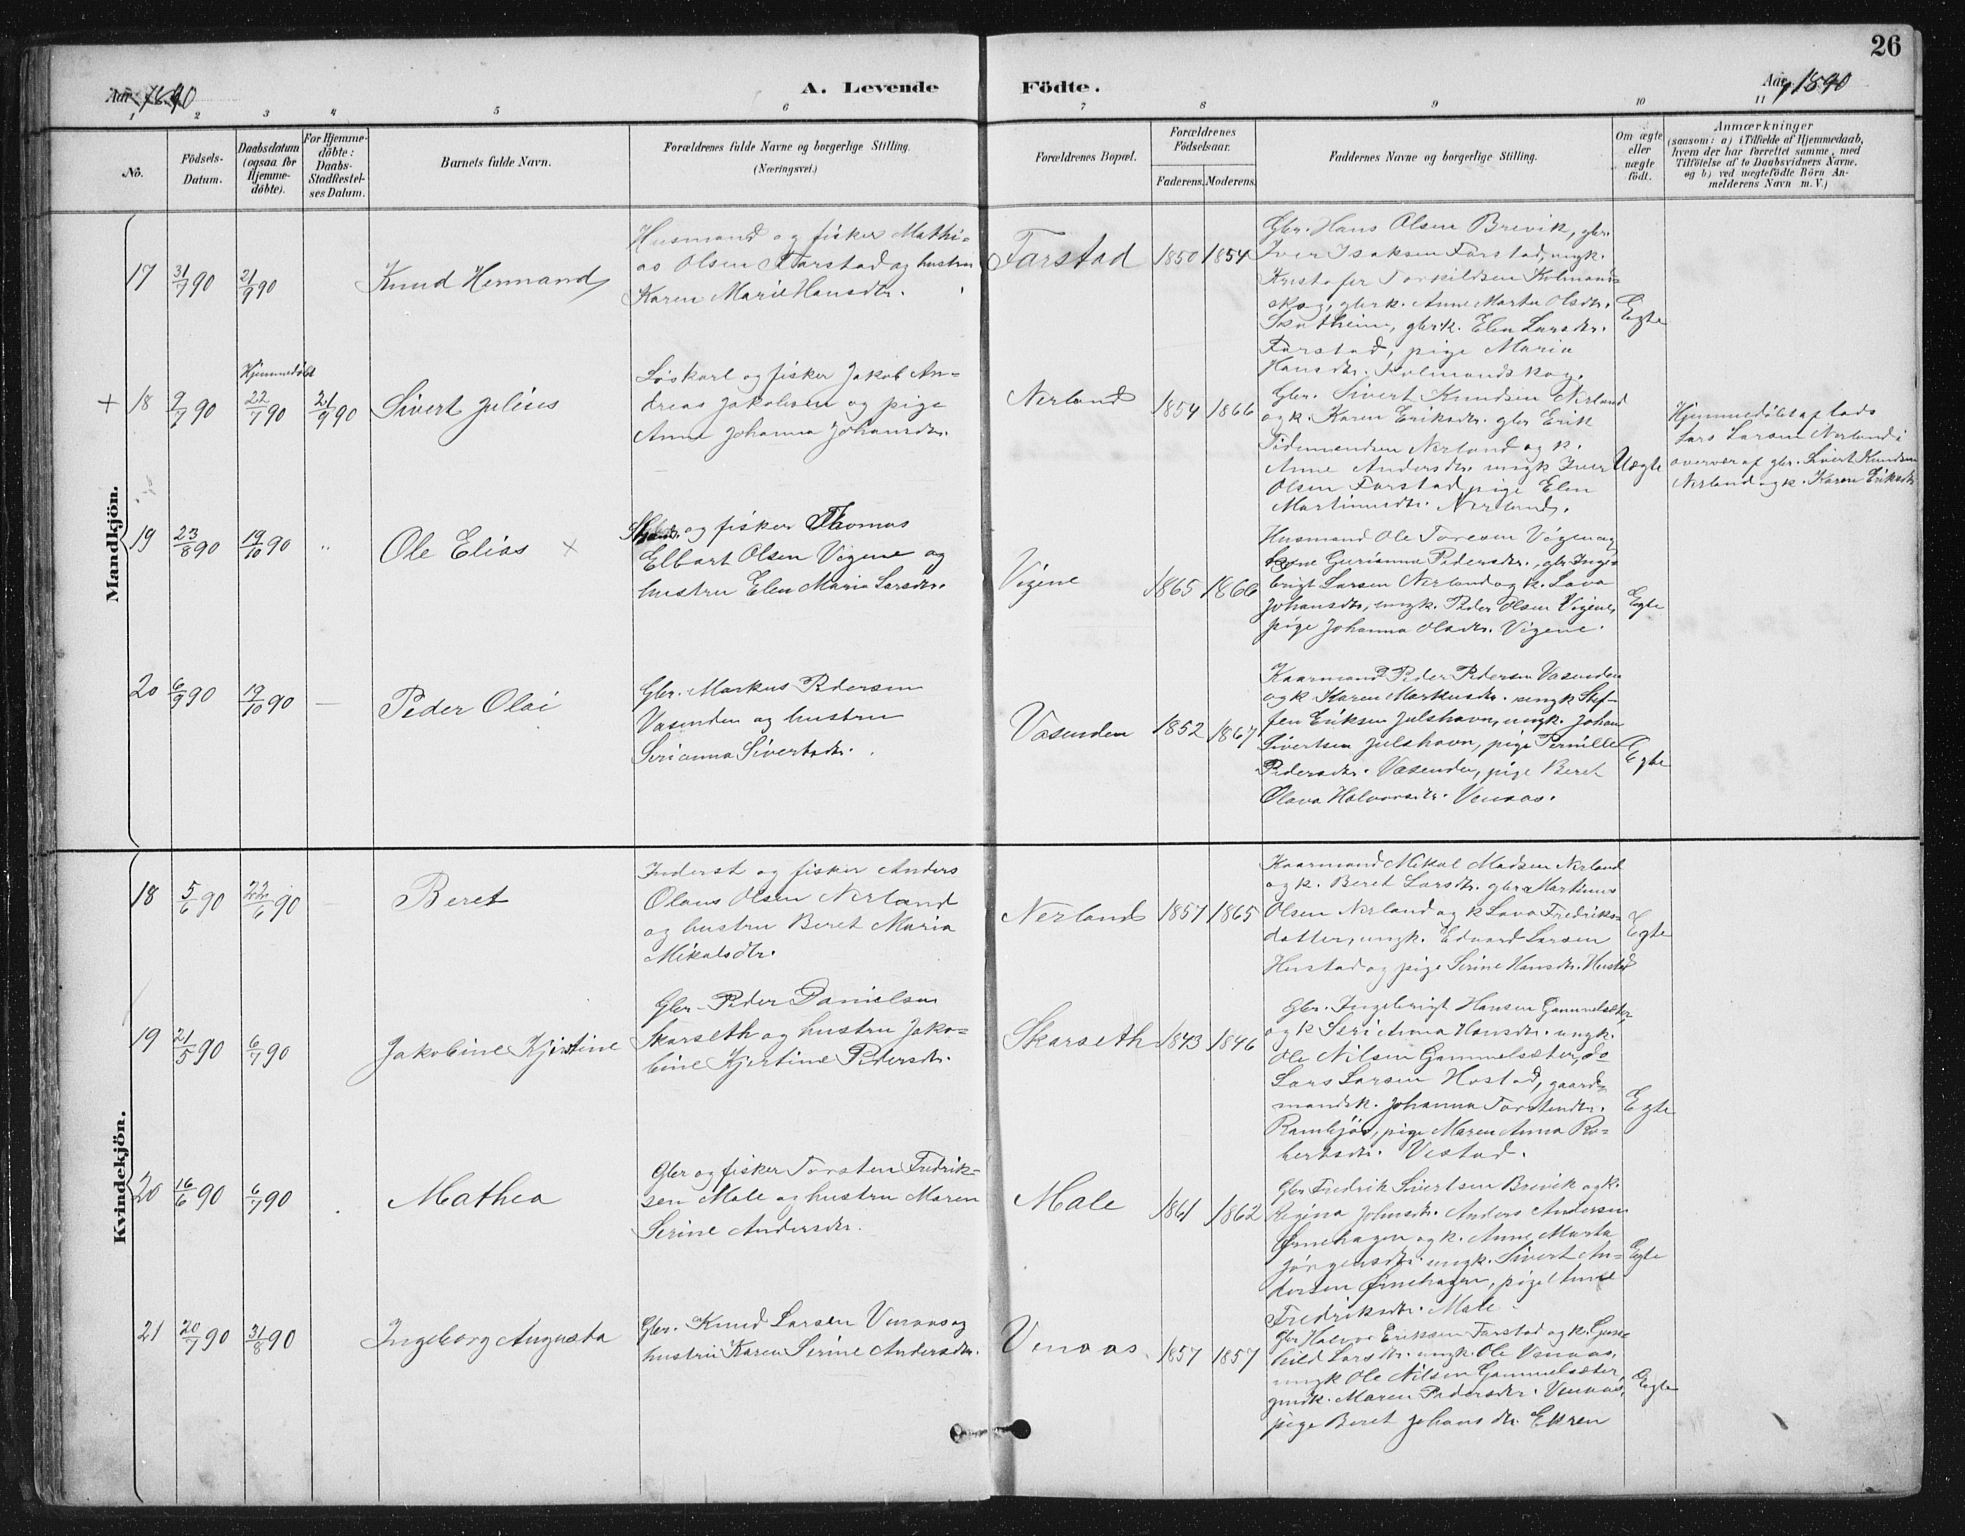 26
Aar 1890
A. Levende
Födte.
Aar 1890
1 2 3 4 5 6 7 8 9 10 11
No.
Födsels-
Datum.
Daabsdatum
(ogsaa for
Hjemme-
döbte).
For Hjemme-
döbte:
Daabs-
Stadfestel-
ses Datum.
Barnets fulde Navn.
Forældrenes fulde Navne og borgerlige Stilling.
(Næringsvei.)
Forældrenes Bopæl.
Forældrenes
Födselsaar.
Faderens.
Moderens.
Faddernes Navne og borgerlige Stilling.
Om ægte
eller
uægte
födt.
Anmærkninger
(saasom: a) i Tilfælde af Hjemmedaab,
hvem der har forrettet samme, med
Tilföielse af to Daabsvidners Navne,
og b) ved uægtefödte Börn An-
melderens Navn m. V.)
Mandkjön.
17
31/7 90
21/9 90
Knud Hermand
Husmand og fisker Mathi-
as Olsen Farstad og hustru
Karen Marie Hansdtr.
Farstad
1850
1854
Gbr. Hans Olsen Brevik, gbr.
Iver Isaksen Farstad, ungk.
Kristofer Torkildsen Kolmands-
skog, gbrk. Anne Marta Olsdtr.
Skotheim, gbrk. Elen Larsdtr.
Farstad, pige Maria
Hansdtr. Kolmandskog.
Egte
+ 18
9/7 90
Hjemmedöbt
22/7 90
21/9 90
Sivert Julius
Löskarl og fisker Jakob An-
dreas Jakobsen og pige
Anne Johanna Johansdtr.
Nerland
1854
1866
Gbr. Sivert Knudsen Nerland
og k. Karen Eriksdtr. gbr Erik
Tidemandsen Nerland og k.
Anne Andersdtr. ungk Iver
Olsen Farstad pige Elen
Martinusdtr. Nerland.
Uægte
Hjemmedöbt af lods
Lars Larsen Nerland i
overvær af gbr. Sivert Knudsen
Nerland og k. Karen Eriksdtr
19
23/8 90
19/10 90
"
Ole Elias x
og fisker Thomas
Elbart Olsen Vigene og
hustru Elen Maria Larsdtr.
Vigene
1865
1866
Husmand Ole Toresen Vigene og
kone Gurianna Pedersdtr., gbr. Inge-
brigt Larsen Nerland og k. Lava
Johansdtr, ungk. Peder Olsen Vigene,
pige Johanna Olsdtr. Vigene.
Egte
20
6/9 90
19/10 90
—
Peder Olai
Gbr. Markus Pedersen
Vasenden og hustru
Serianna Sivertsdtr.
Vasenden
1852
1867
Kaarmand Peder Pedersen Vasenden
og k Karen Markusdtr. ungk Stef-
fen Eriksen Julshavn, ungk. Johan
Sivertsen Julshavn, pige Pernille
Pedersdtr. Vasenden, pige Beret
Olava Halvorsdtr. Venaas.
Egte
Kvindekjön.
18
5/6 90
22/6 90
—
Beret
Inderst og fisker Anders
Olaus Olsen Nerland
og hustru Beret Maria
Mikalsdtr.
Nerland
1857
1865
Kaarmand Mikal Madsen Nerland
og k. Beret Larsdtr. gbr Martinus
Olsen Nerland og k Lava Fredriks-
datter, ungk. Edvard Larsen
Hustad og pige Serine Hansdtr. Hustad
Egte
19
21/5 90
6/7 90
Jakobine Kjirstine
Gbr. Peder Danielsen
Skarseth og hustru Jako-
bine Kjertine Pedersdtr.
Skarseth
1843
1846
Gbr. Ingebrigt Hansen Gammelsæter,
og k Serianna Hansdtr. ungk.
Ole Nilsen Gammelsæter, do
Lars Larsen Hostad, gaard-
mandsk. Johanna Torstendtr.
Rambjör, pige Maren Anna Ro-
bertsdtr. Vestad.
Egte
20
16/6 90
6/7 90
Mathea
Gbr og fisker Torsten Fredrik-
sen Male og hustru Maren
Serine Andersdtr.
Male
1861
1862
Gbr Fredrik Sivertsen Brevik og k.
Regina Johnsdtr. Anders Andersen
Ørnehagen og k. Anne Marta
Jörgensdtr. ungk. Sivert An-
dersen Ørnehagen, pige Anne
Fredriksdtr. Male.
Egte
21
20/7 90
31/8 90
Ingeborg Augusta
Gbr. Knud Larsen Venaas og
hustru Karen Serine Andersdtr.
Venaas
1857
1857
Gbr Halvor Eriksen Farstad og k. Gun-
hild Larsdtr. ungk. Ole Venaas,
ungk Ole Nilsen Gammelsæter,
gmdk. Maren Pedersdtr. Venaas,
pige Beret Johansdtr. Ekren
Egte